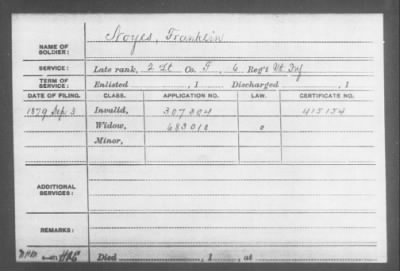 NAME OF SOLDIER: Noyes, Franklin
SERVICE: Late rank, 2 Lt Co. F, 6 Reg't Vt Inf
TERM OF SERVICE: Enlisted , 1 Discharged , 1
DATE OF FILING. CLASS. APPLICATION NO. LAW. CERTIFICATE NO.
1879 Sep. 3 Invalid, 307304 415154
Widow, 683010
Minor,
ADDITIONAL SERVICES:
REMARKS:
Died , 1 , at